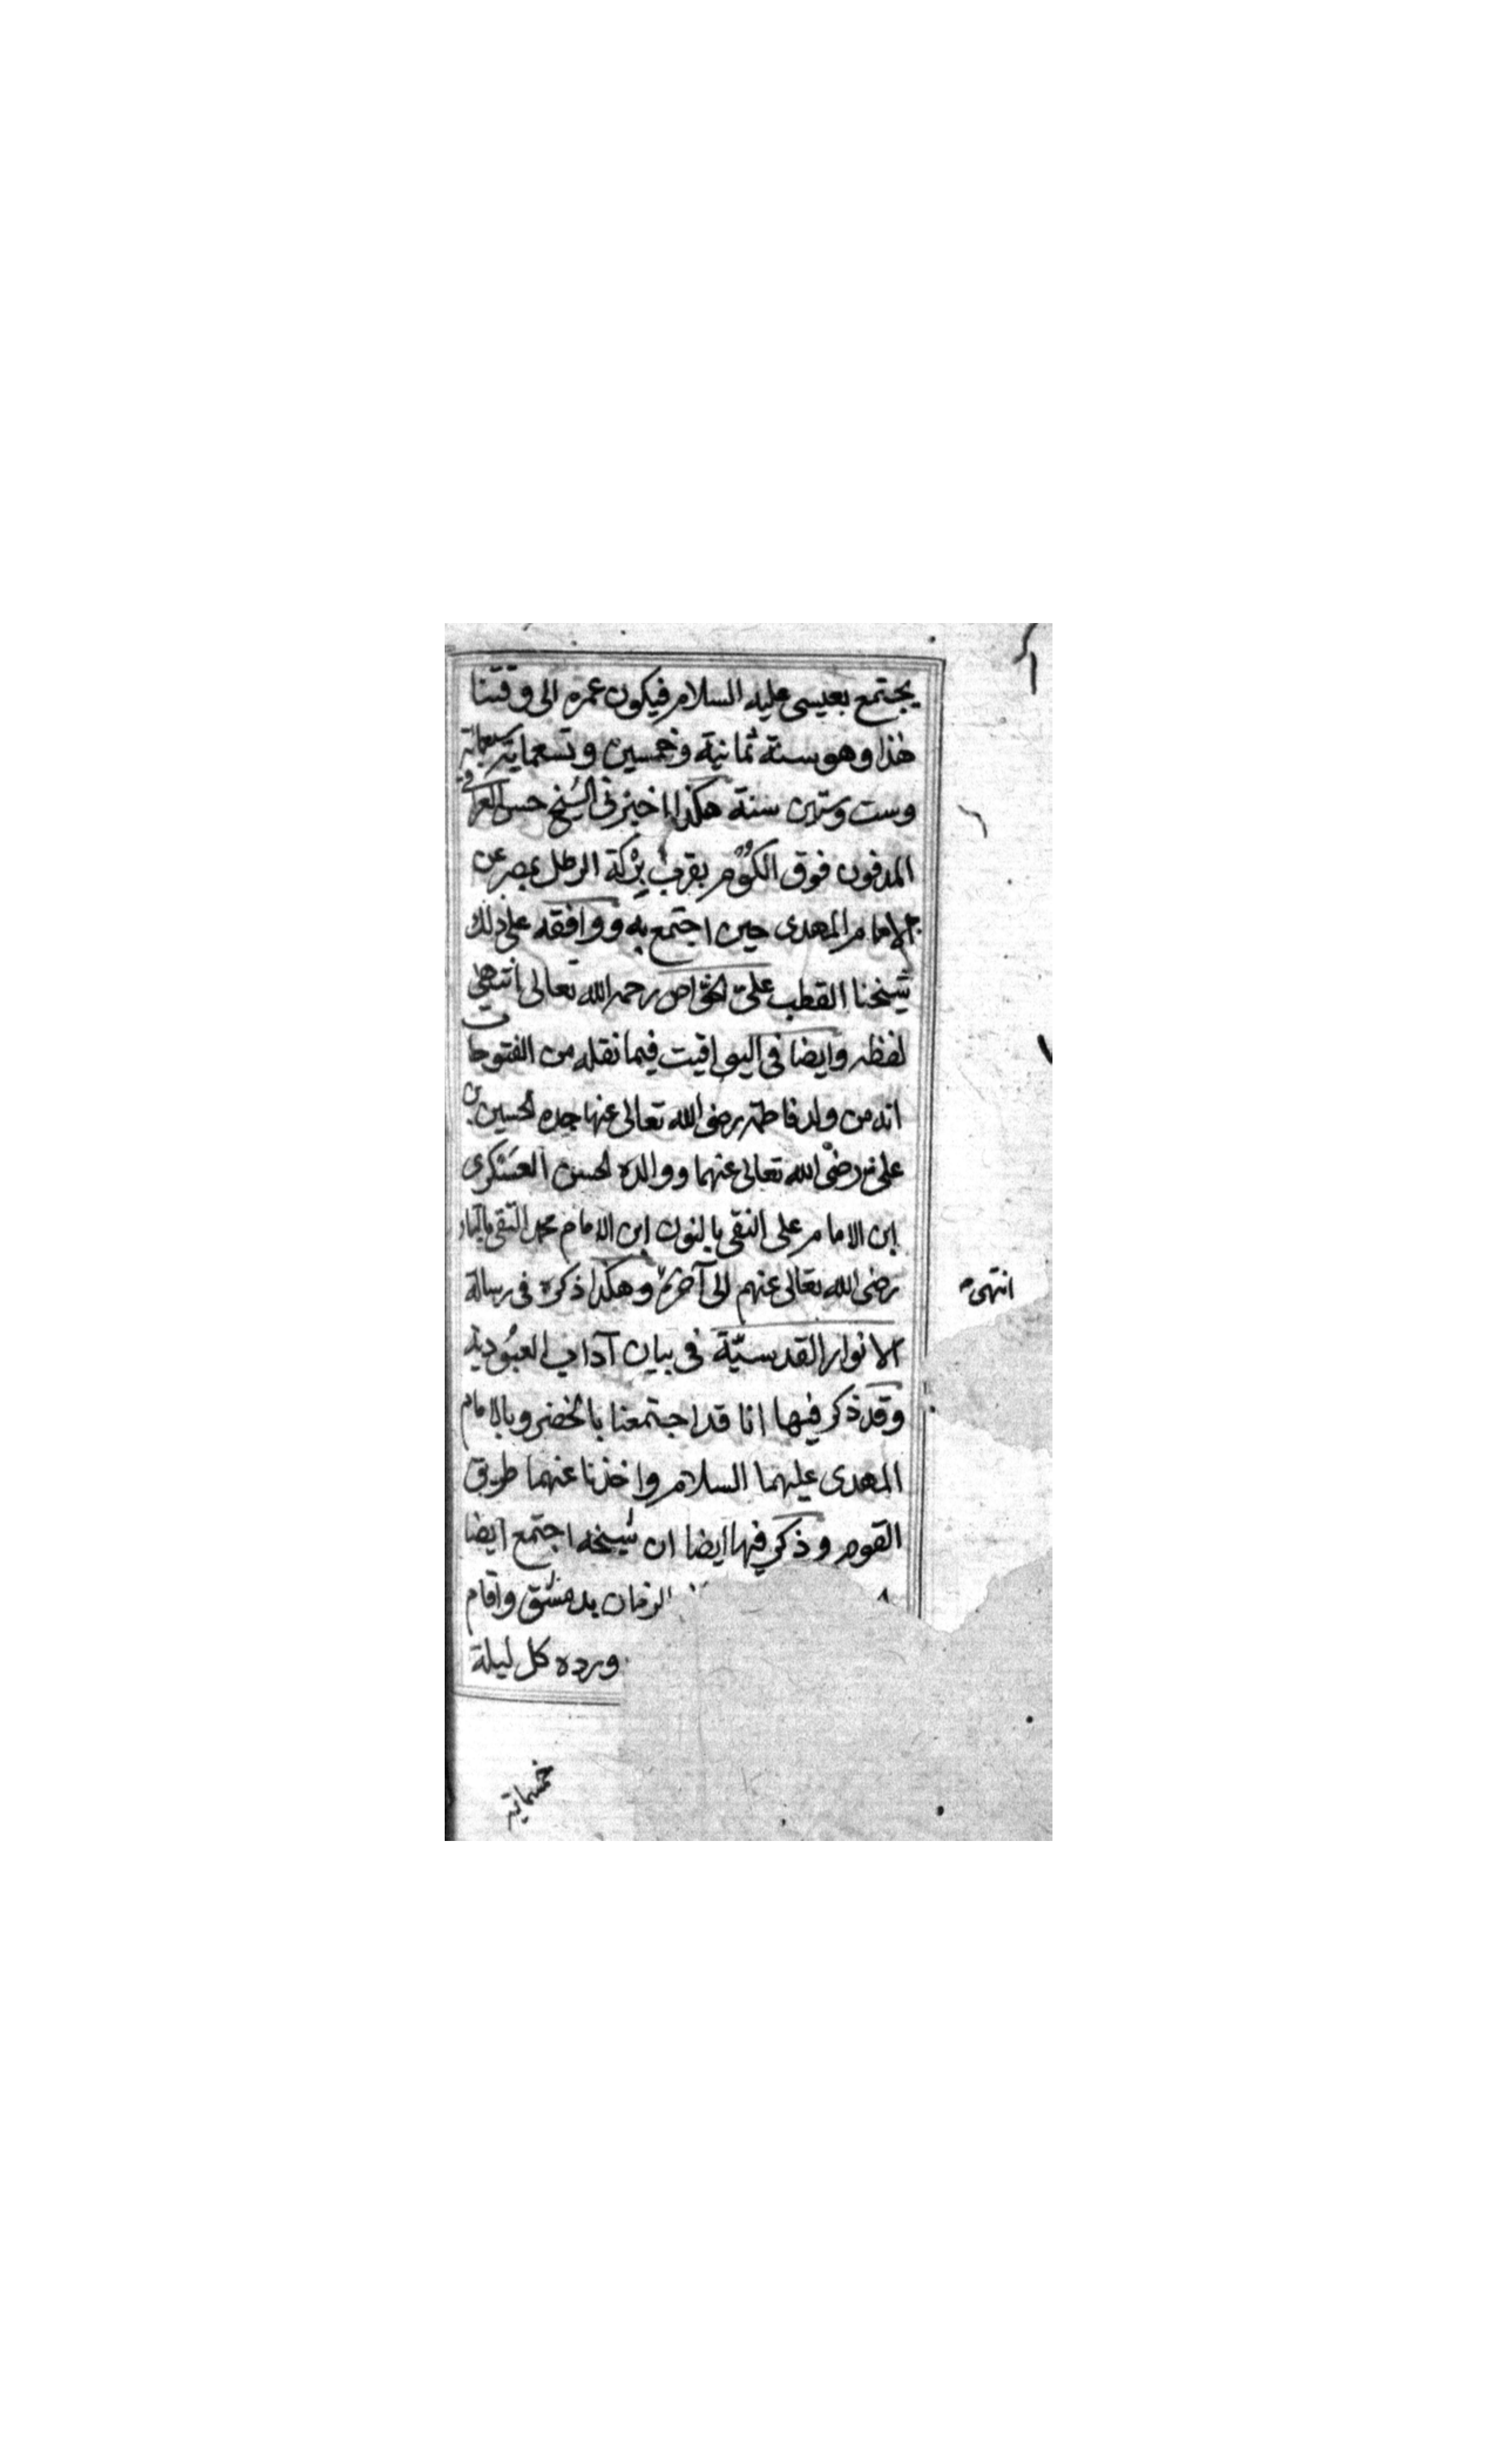 يجتمع بعيسى عليه السلام فيكون عمره الى وقتنا
هذا وهو سنة ثمانية وخمسين وتسعماية سبعماية
وست وستين سنة هكذا اخبرنى الشيخ حسن العراقى
المدفون فوق الكوم بقرب بركة الرطل بمصر عن
الامام المهدى حين اجتمع به ووافقه على ذلك
شيخنا القطب على الخواص رحمه الله تعالى انتهى
لفظه وايضا فى اليواقيت فيما نقله من الفتوحات
انه من ولد فاطمة رضى الله تعالى عنها جده الحسين بن
على رضى الله تعالى عنهما ووالده الحسن العسكرى
ابن الامام على النقى بالنون ابن الامام محمد التقى بالتاء
رضى الله تعالى عنهم الى آخره وهكذا ذكره فى رسالة
انتهى
الانوار القدسيّة فى بيان آداب العبُودية
وقد ذكر فيها انا قد اجتمعنا بالخضر وبالامام
المهدى عليهما السلام واخذنا عنهما طريق
القوم وذكر فيها ايضا ان شيخه اجتمع ايضا
الزمان بدمشق واقام
ورده كل ليلة
خمسماية